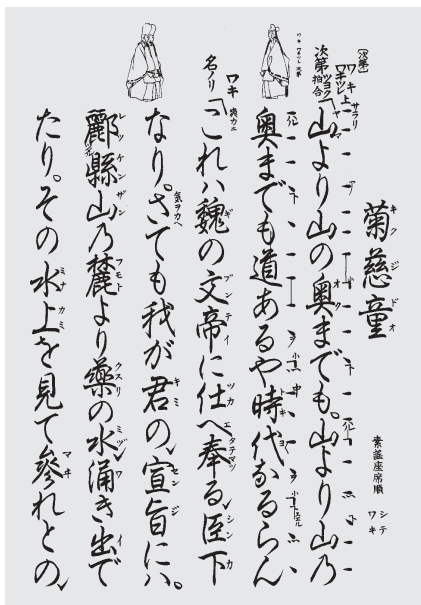 菊慈童
キクジドオ
素謡座席順
シテ
ワキ
〔次第〕
ワキ
ワキツレ
上 サラリ
次第 ツヨク
拍合
「山より山の奥までも。山より山乃
奥までも道あるや時代なるらん
ワキ
名ノリ
「これハ魏の文帝に仕へ奉る臣下
なり。さても我が君の宣旨にハ。
酈縣山乃麓より薬の水涌き出で
たり。その水上を見て参れとの